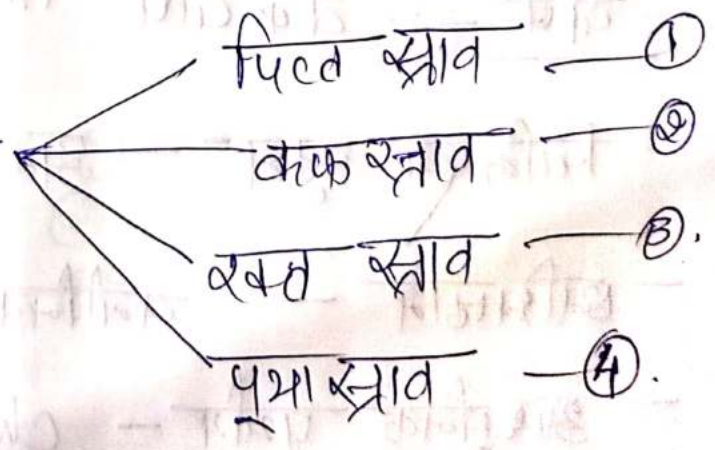 पित्त स्राव — ①
कफ स्राव — ②
रक्त स्राव — ③.
पूया स्राव — ④.